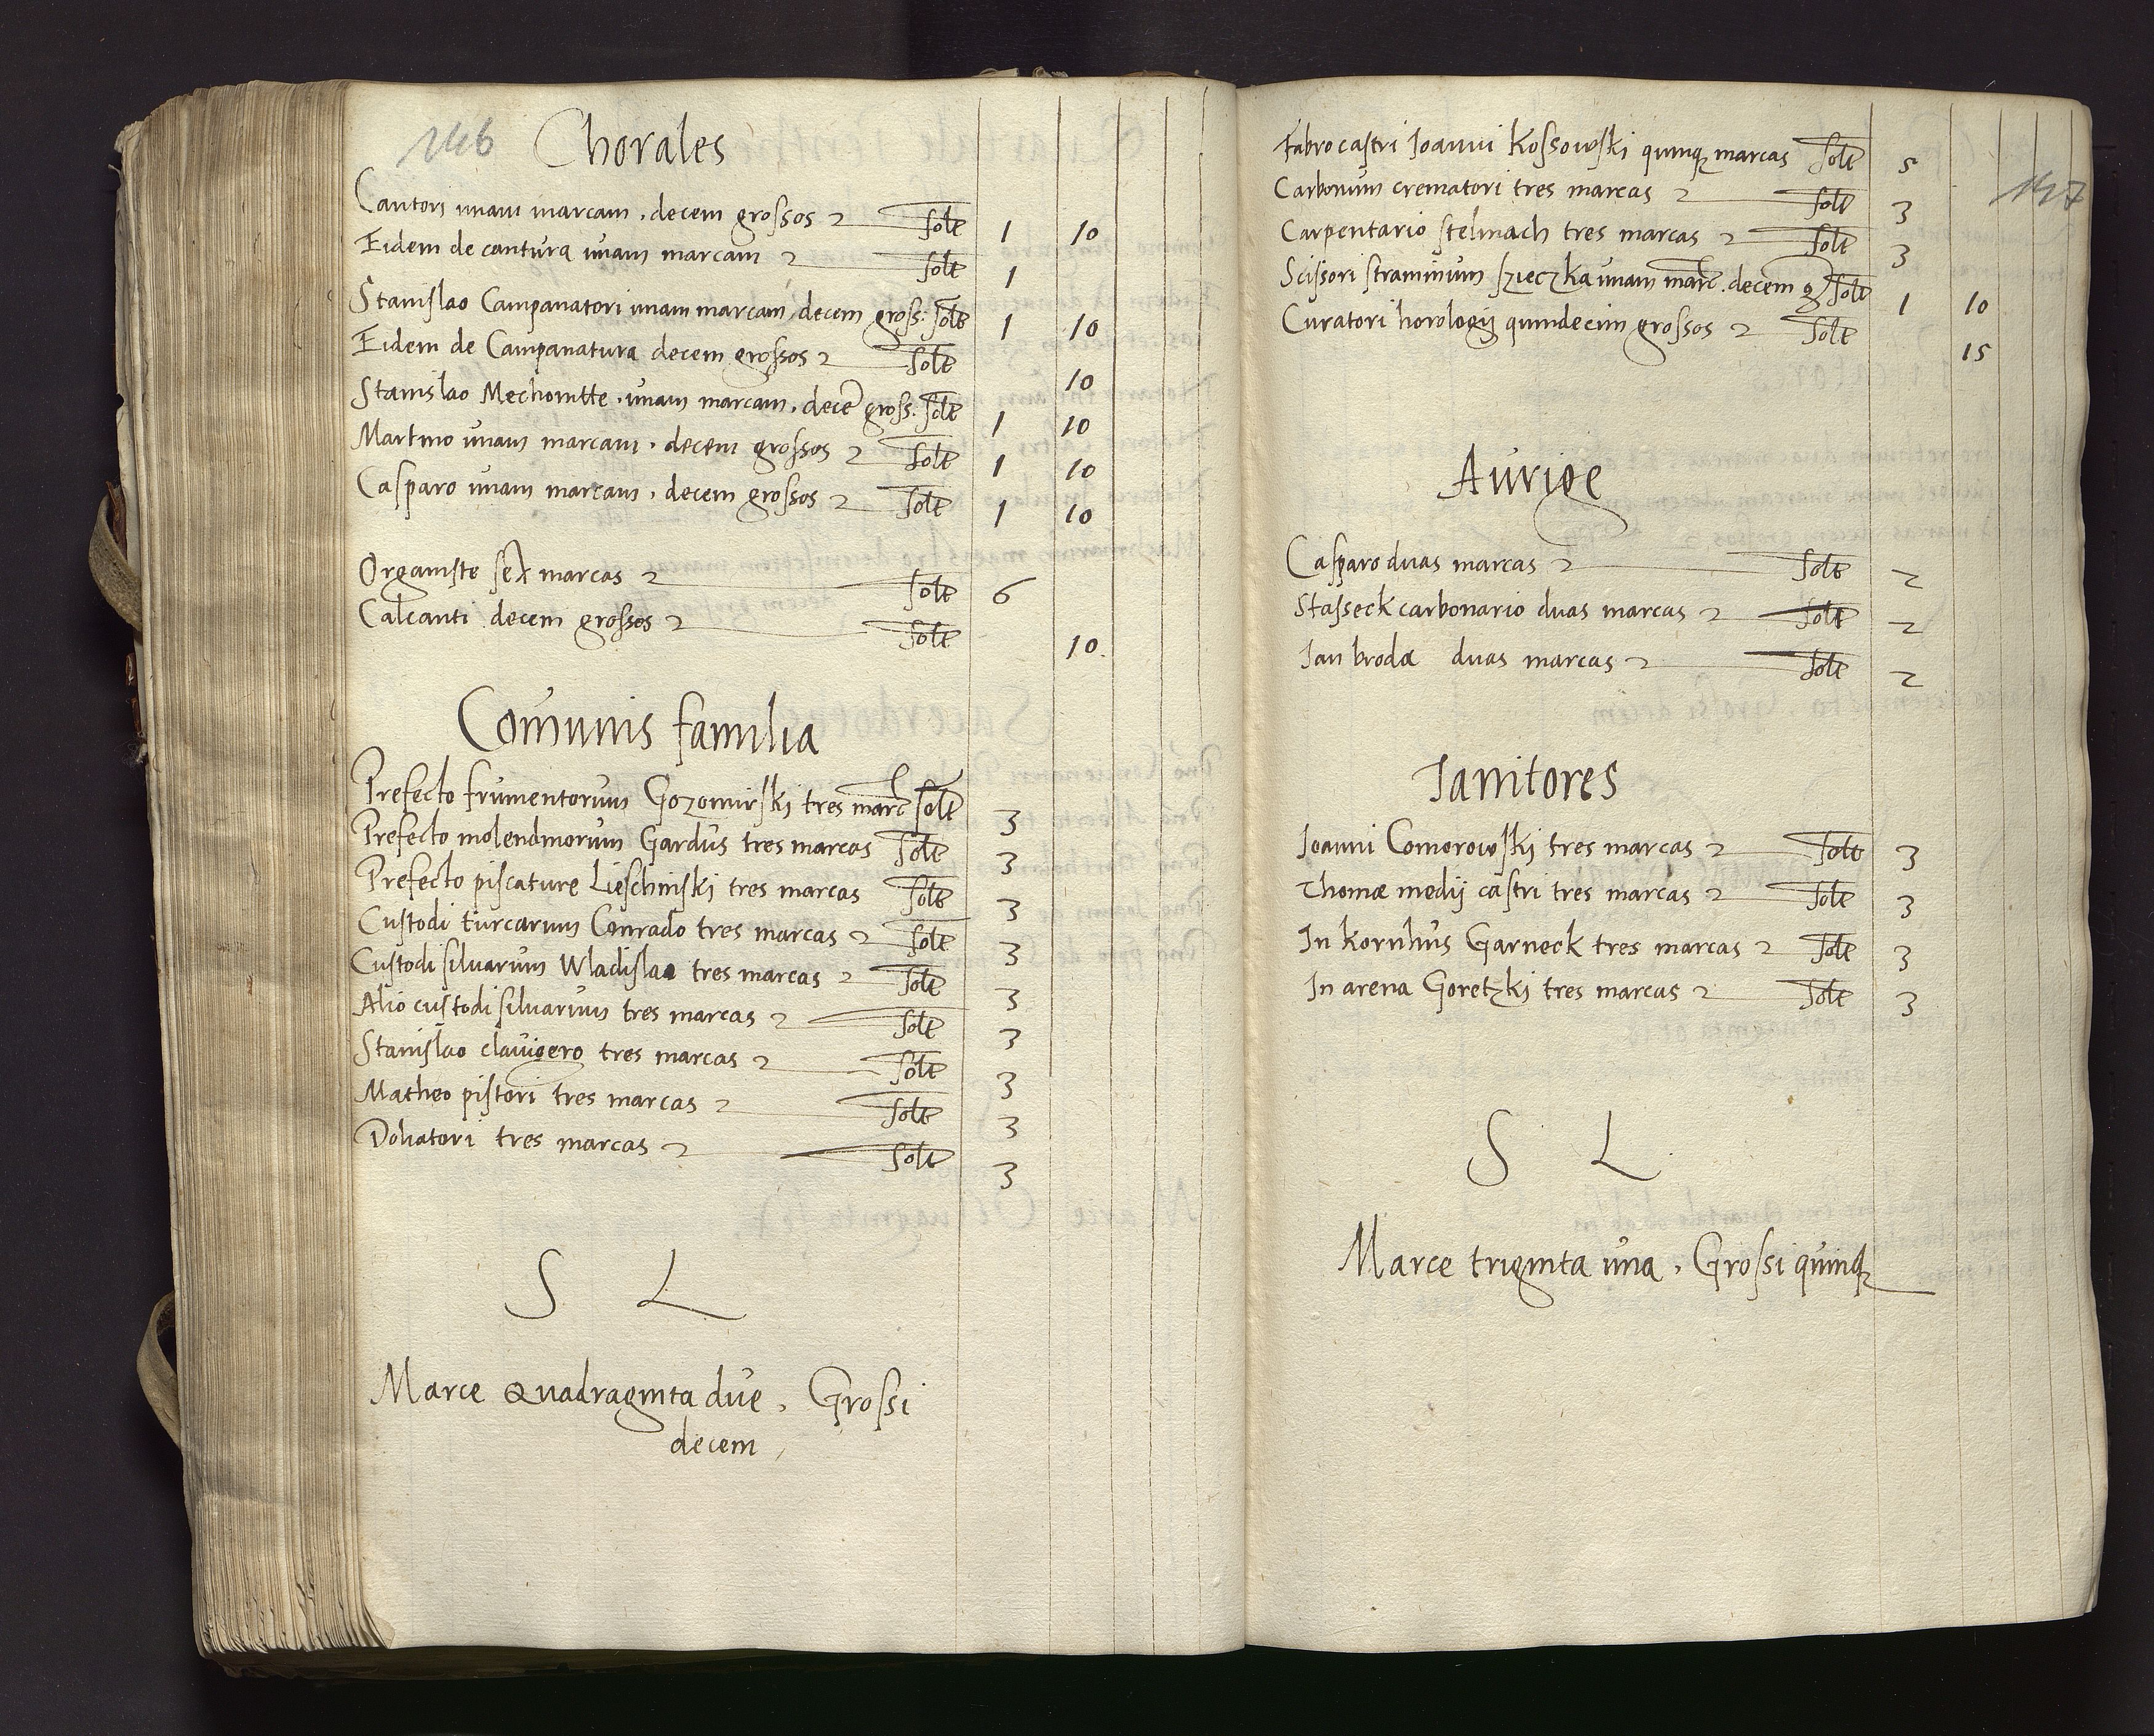 146 Chorales
Cantori unam marcam, decem grossos solt 1 10
Eidem de cantura unam marcam solt 1
Stanislao Campanatori unam marcam, decem gross: solt 1 10
Eidem de Campanatura decem grossos solt 10
Stanislao Mechomtte, unam marcam, dece gross: solt 1 10
Martino unam marcam, decem grossos solt 1 10
Casparo unam marcam, decem grossos solt 1 10
Organiste sex marcas solt 6
Calcanti decem grossos solt 10
Comunis familia
Prefecto frumentorum Gozomirski tres marc solt 3
Prefecto molendinorum Gardus tres marcas solt 3
Prefecto piscature Lieschinski tres marcas solt 3
Custodi turcarum Conrado tres marcas solt 3
Custodi silvarum Wladislao tres marcas solt 3
Alio custodi silvarum tres marcas solt 3
Stanislao clavigero tres marcas solt 3
Matheo pistori tres marcas solt 3
Doliatori tres marcas solt 3
S L
Marce Quadraginta due, Grossi
decem
147
Fabro castri Joanni Kossowski quinq marcas solt 5
Carbonum crematori tres marcas solt 3
Carpentario stelmach tres marcas solt 3
Scissori straminum szieczka unam marc. decem g solt 1 10
Curatori horologij quindecim grossos solt 15
Aurige
Casparo duas marcas solt 2
Stasseck carbonario duas marcas solt 2
Jan broda duas marcas solt 2
Janitores
Joanni Comorowski tres marcas solt 3
Thomæ medij castri tres marcas solt 3
In kornhus Garneck tres marcas solt 3
In arena Goretzki tres marcas solt 3
S L
Marce triginta una, Grossi quinq